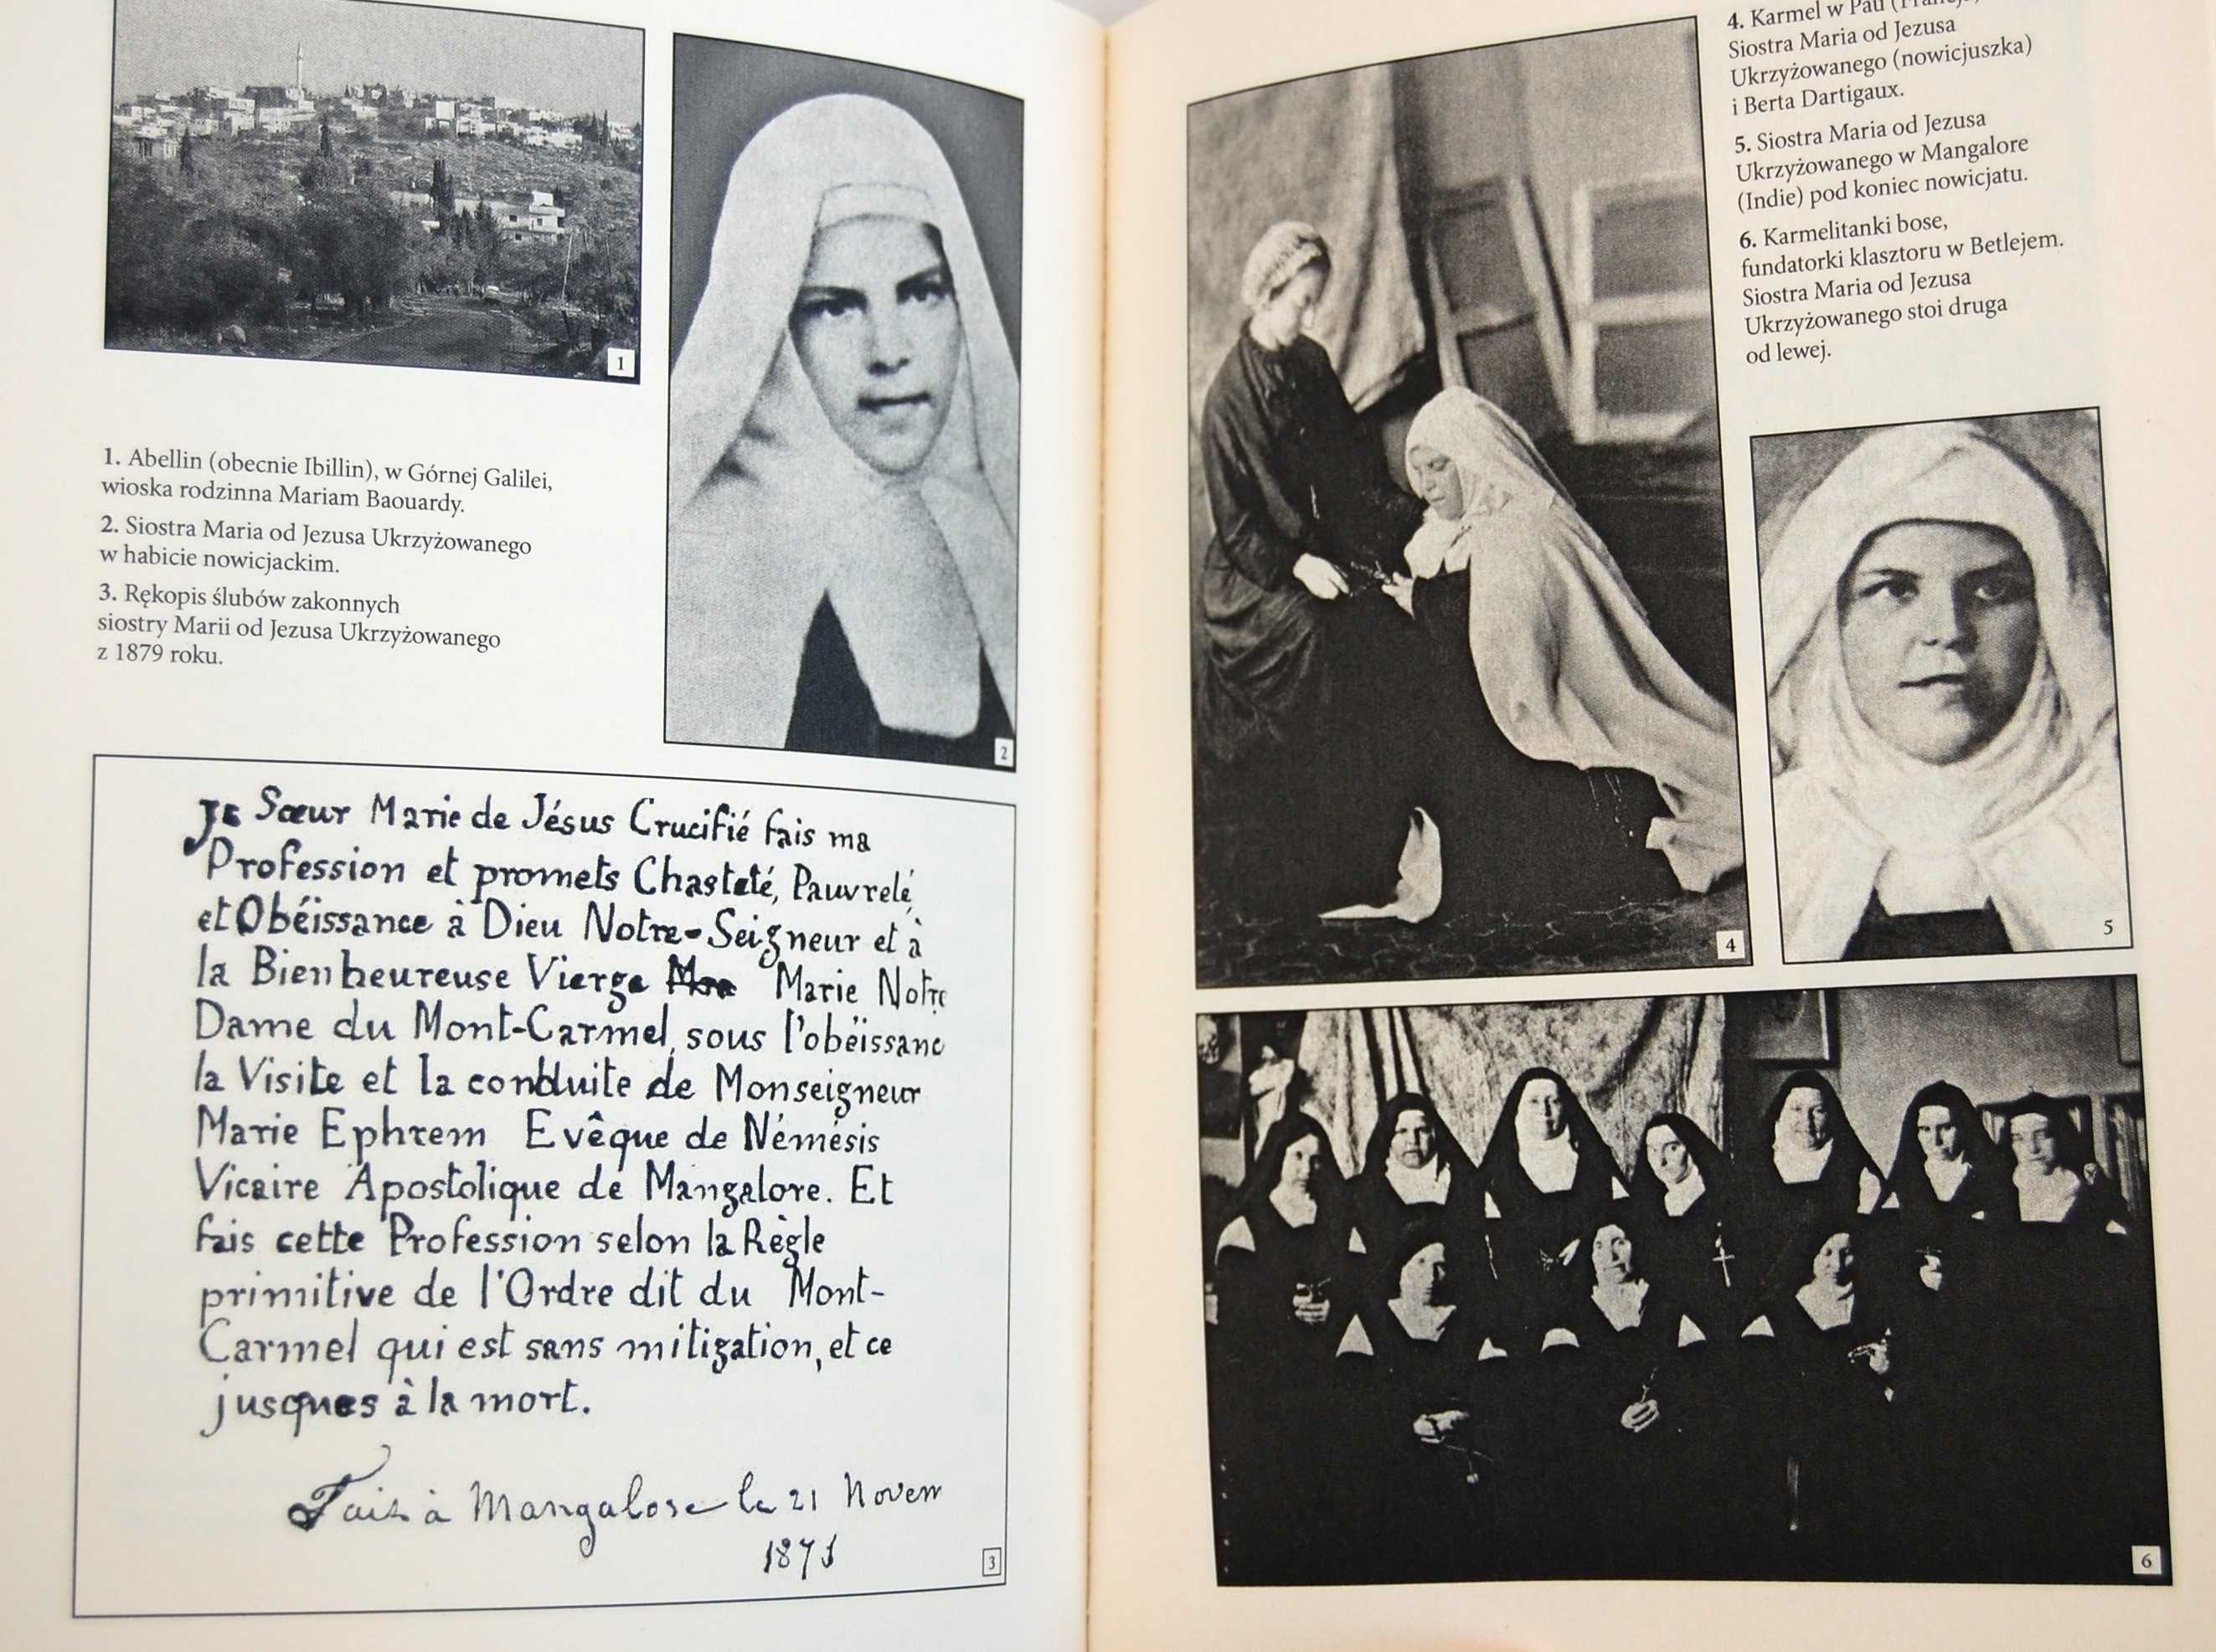 1
1. Abellin (obecnie Ibillin), w Górnej Galilei,
wioska rodzinna Mariam Baouardy.
2. Siostra Maria od Jezusa Ukrzyżowanego
w habicie nowicjackim.
3. Rękopis ślubów zakonnych
siostry Marii od Jezusa Ukrzyżowanego
z 1879 roku.
2
Je Sœur Marie de Jésus Crucifié fais ma
Profession et promets Chasteté, Pauvrelé,
et Obéissance à Dieu Notre-Seigneur et à
la Bienheureuse Vierge Marie Notre
Dame du Mont-Carmel, sous l'obéissanc
la Visite et la conduite de Monseigneur
Marie Ephrem Evêque de Némésis
Vicaire Apostolique de Mangalore. Et
fais cette Profession selon la Règle
primitive de l'Ordre dit du Mont-
Carmel qui est sans mitigation, et ce
jusques à la mort.
Fais à Mangalose le 21 Novem
1871
3
4. Karmel w Pau
Siostra Maria od Jezusa
Ukrzyżowanego (nowicjuszka)
i Berta Dartigaux.
5. Siostra Maria od Jezusa
Ukrzyżowanego w Mangalore
(Indie) pod koniec nowicjatu.
6. Karmelitanki bose,
fundatorki klasztoru w Betlejem.
Siostra Maria od Jezusa
Ukrzyżowanego stoi druga
od lewej.
4
5
6